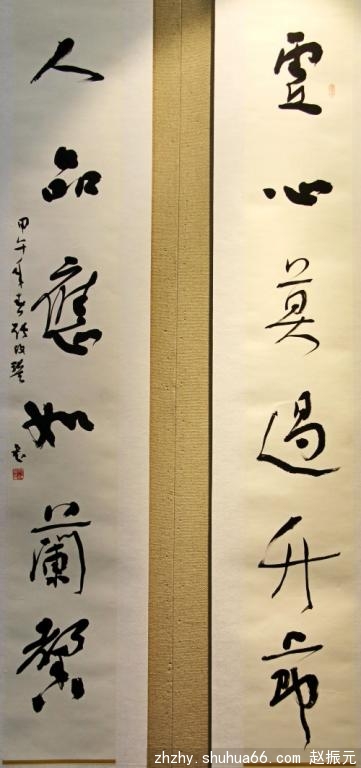 虛心莫過竹節
人品應如蘭馨
甲午年春張改琴
zhzhy.shuhua66.com 赵振元